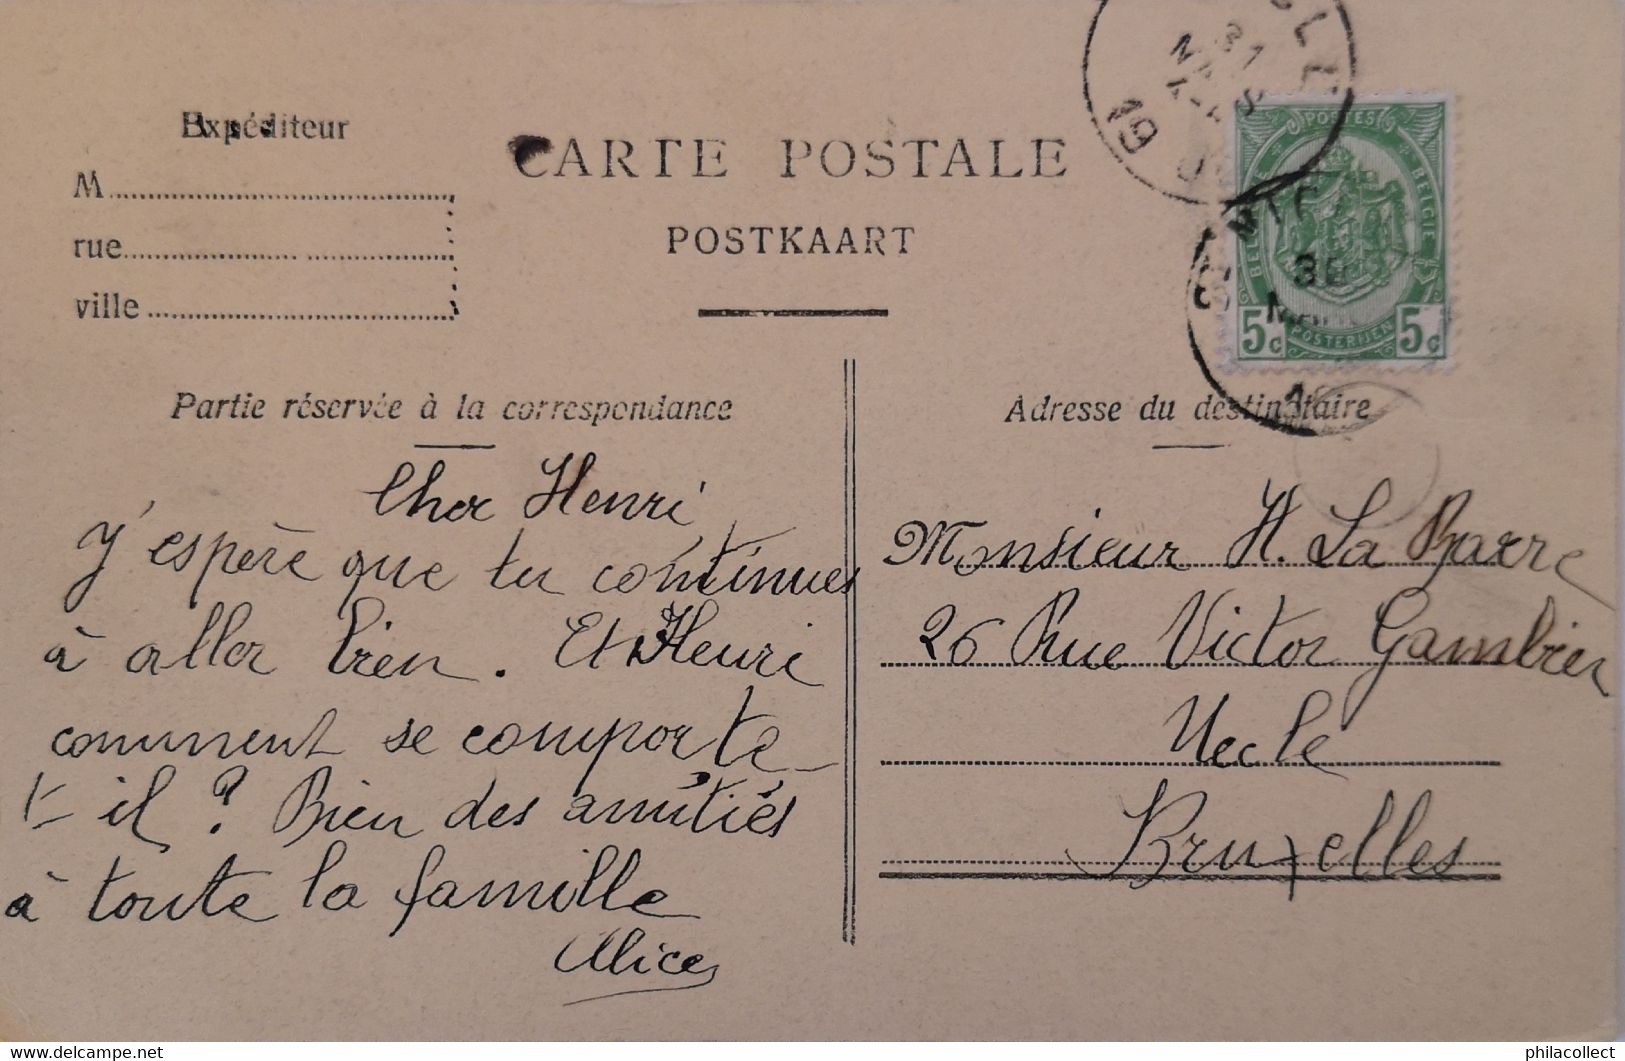 Expéditeur
M
rue
ville
CARTE POSTALE
POSTKAART
POSTES
BELGIQUE
BELGIE
5c
POSTERIJEN
5c
31
19
Partie réservée à la correspondance
Cher Henri
J'espère que tu continues
à aller bien. Et Henri
comment se comporte
t-il ? Bien des amitiés
à toute la famille
Alice
Adresse du destinataire
Monsieur H. La Barre
26 Rue Victor Gambier
Uccle
Bruxelles
delcampe.net
philacollect